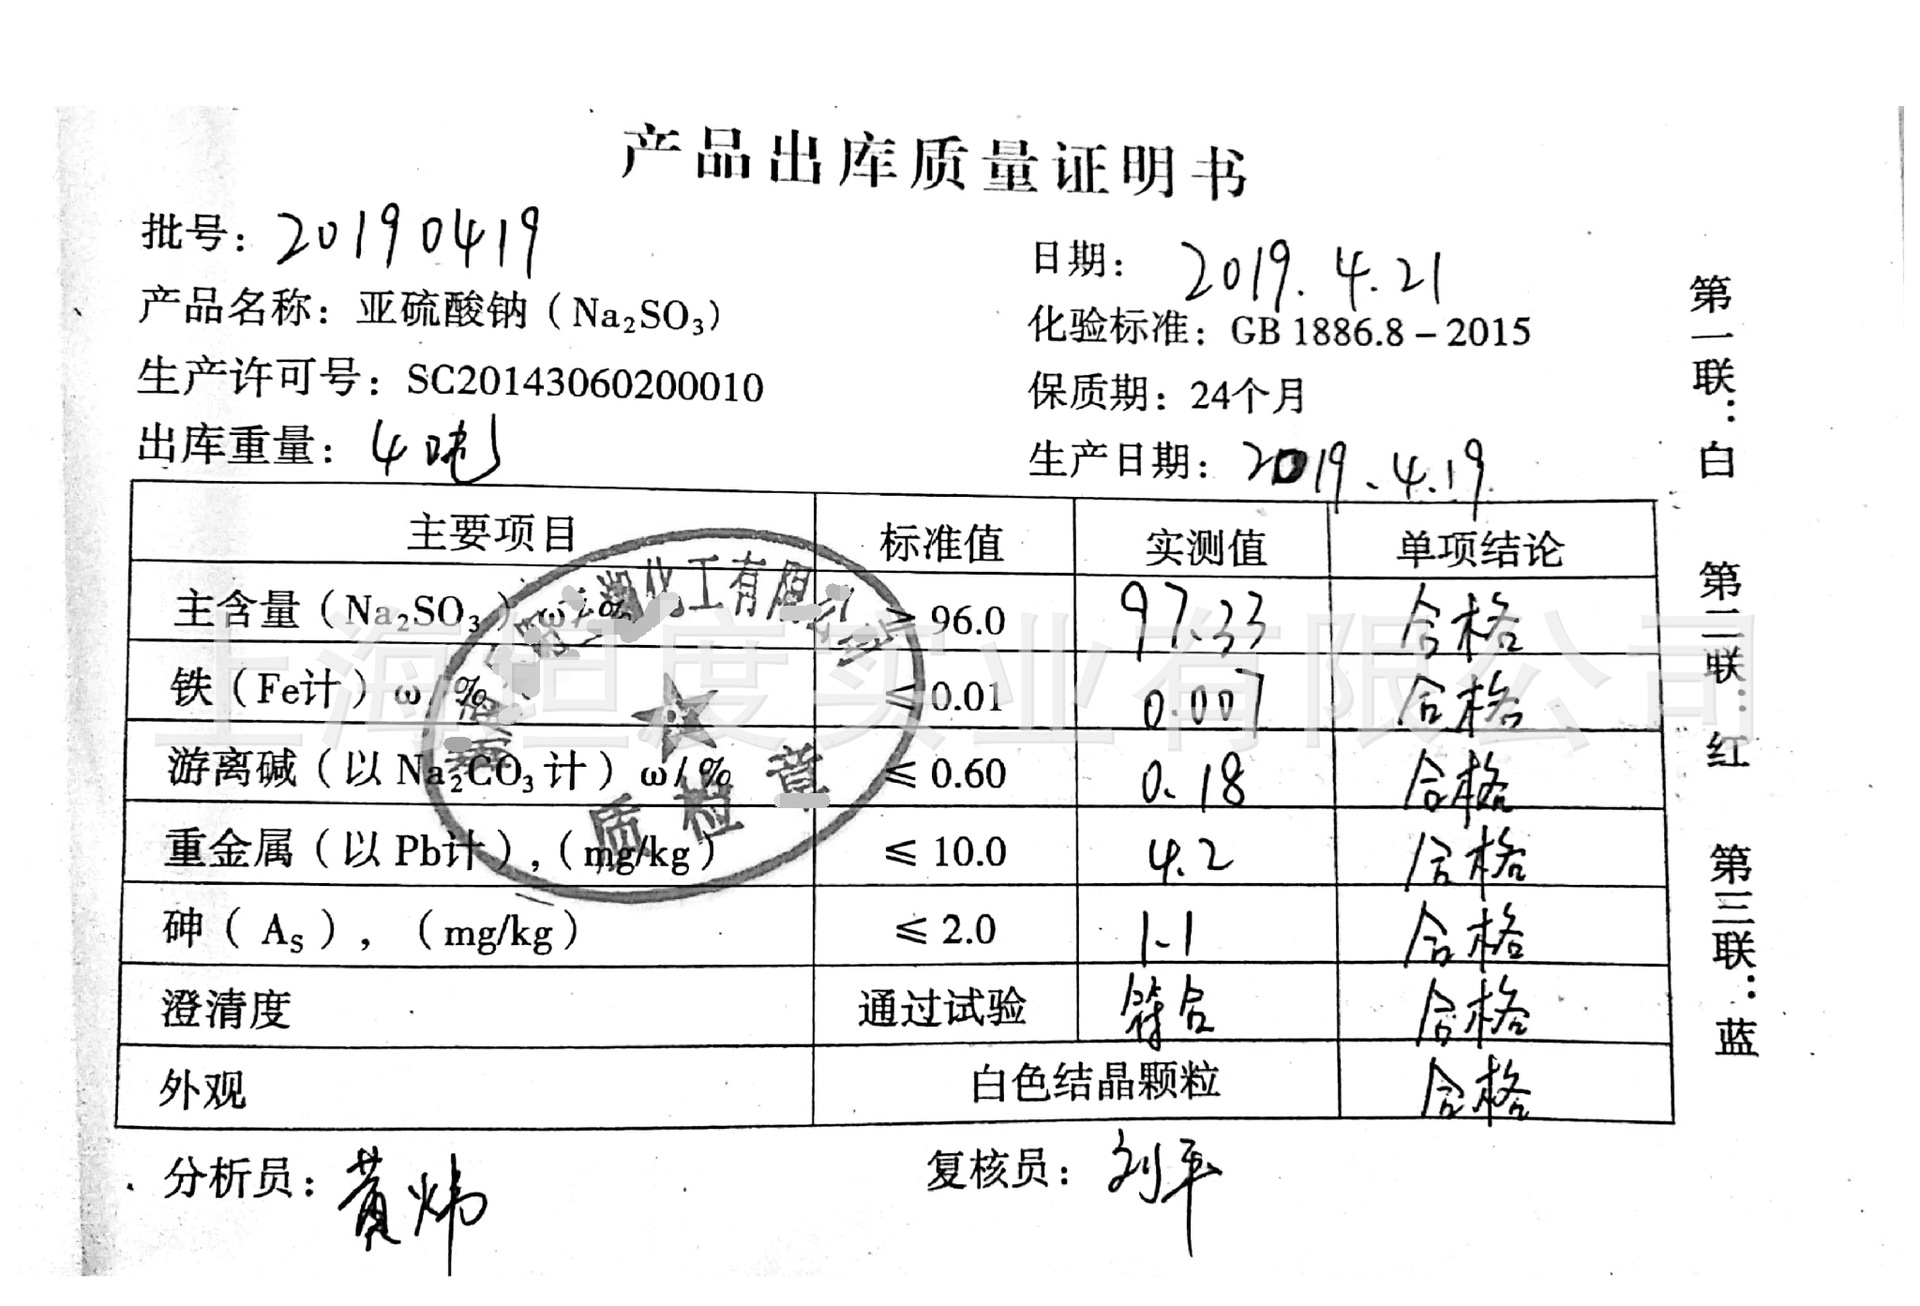 产品出库质量证明书
批号：20190419
日期：2019.4.21
产品名称：亚硫酸钠（Na₂SO₃）
化验标准：GB 1886.8－2015
生产许可号：SC20143060200010
保质期：24个月
出库重量：4吨
生产日期：2019.4.19
主要项目 标准值 实测值 单项结论
主含量（Na₂SO₃）ω/% ≥ 96.0 97.33 合格
铁（Fe计）ω/% ≤ 0.01 0.007 合格
游离碱（以 Na₂CO₃ 计）ω/% ≤ 0.60 0.18 合格
重金属（以 Pb计），（mg/kg） ≤ 10.0 4.2 合格
砷（As），（mg/kg） ≤ 2.0 1.1 合格
澄清度 通过试验 符合 合格
外观 白色结晶颗粒 合格
分析员：黄炜
复核员：刘平
第一联：白 第二联：红 第三联：蓝
化工有限公司
质检章
上海坦度实业有限公司